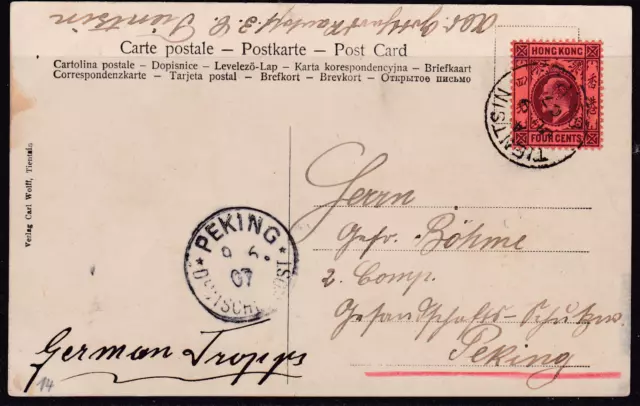 Tientsin
Carte postale – Postkarte – Post Card
Cartolina postale – Dopisnice – Levelező-Lap – Karta korespondencyjna – Briefkaart
Correspondenzkarte – Tarjeta postal – Brefkort – Brevkort – Открытое письмо
HONG KONG
FOUR CENTS
TIENTSIN
Verlag Carl Wolff, Tientsin
PEKING
07
Herrn
Gefr. Böhme
2. Comp.
Gesandtschafts-Schutzw.
Peking
German Tropps
14